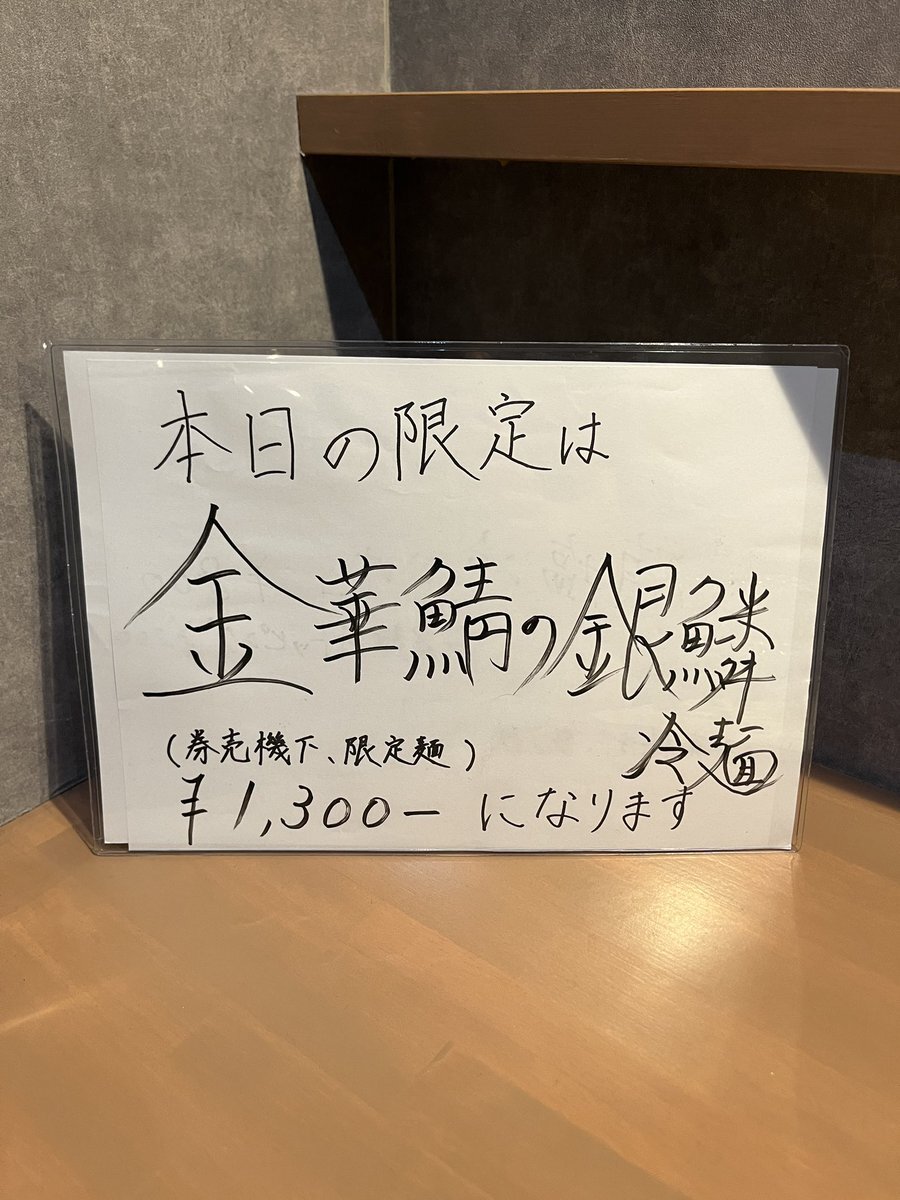 本日の限定は
金華鯖の銀鱗
冷麺
(券売機下、限定麺)
¥1,300-になります